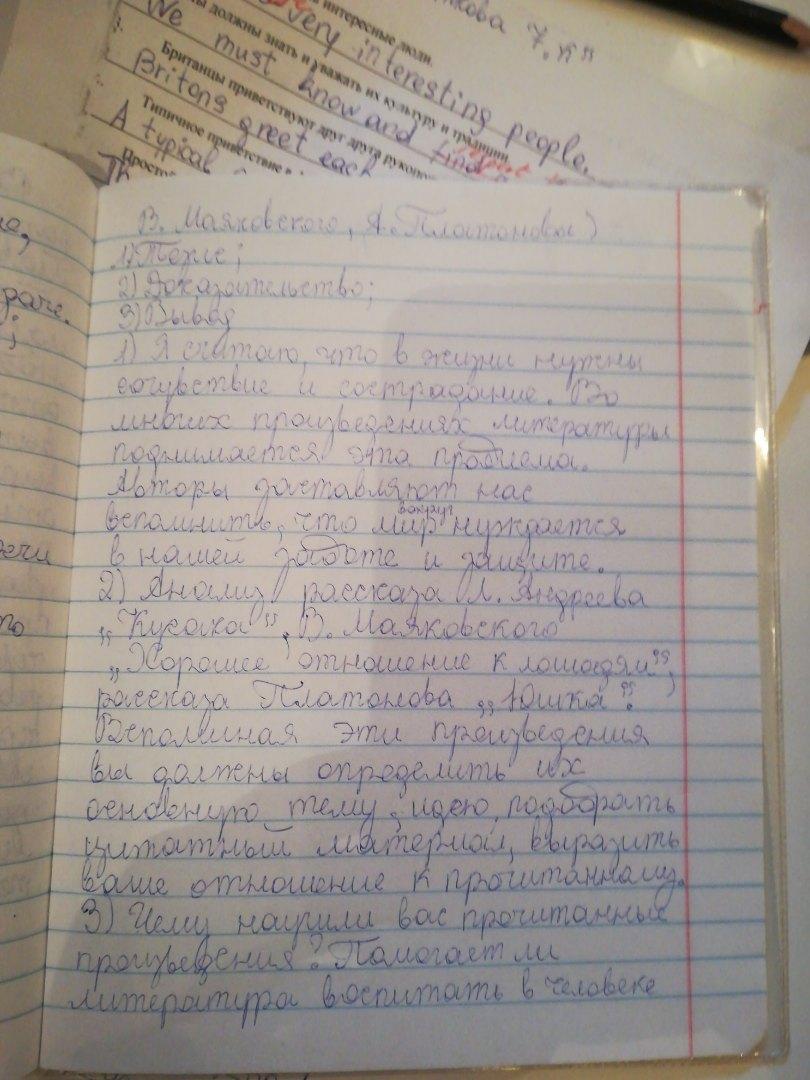 нкова 7.кл
интересные люди.
very interesting people.
ы должны знать и уважать их культуру и традиции.
We must know and
Британцы приветствуют друг друга рукопо
Britons greet each
Типичное приветствие
A typical
Th
Просто
В. Маяковского, А. Платонова)
1) Тезис;
2) Доказательство;
3) Вывод
1) Я считаю, что в жизни нужны
сочувствие и сострадание. Во
многих произведениях литературы
поднимается эта проблема.
Авторы заставляют нас
вспомнить, что мир вокруг нуждается
в нашей заботе и защите.
2) Анализ рассказа Л. Андреева
„Кусака", В. Маяковского
„Хорошее отношение к лошадям",
рассказа Платонова „Юшка".
Вспоминая эти произведения
вы должены определить их
основную тему, идею, подобрать
цитатный материал, выразить
ваше отношение к прочитанному.
3) Чему научили вас прочитанные
произведения? Помогает ли
литература воспитать в человеке